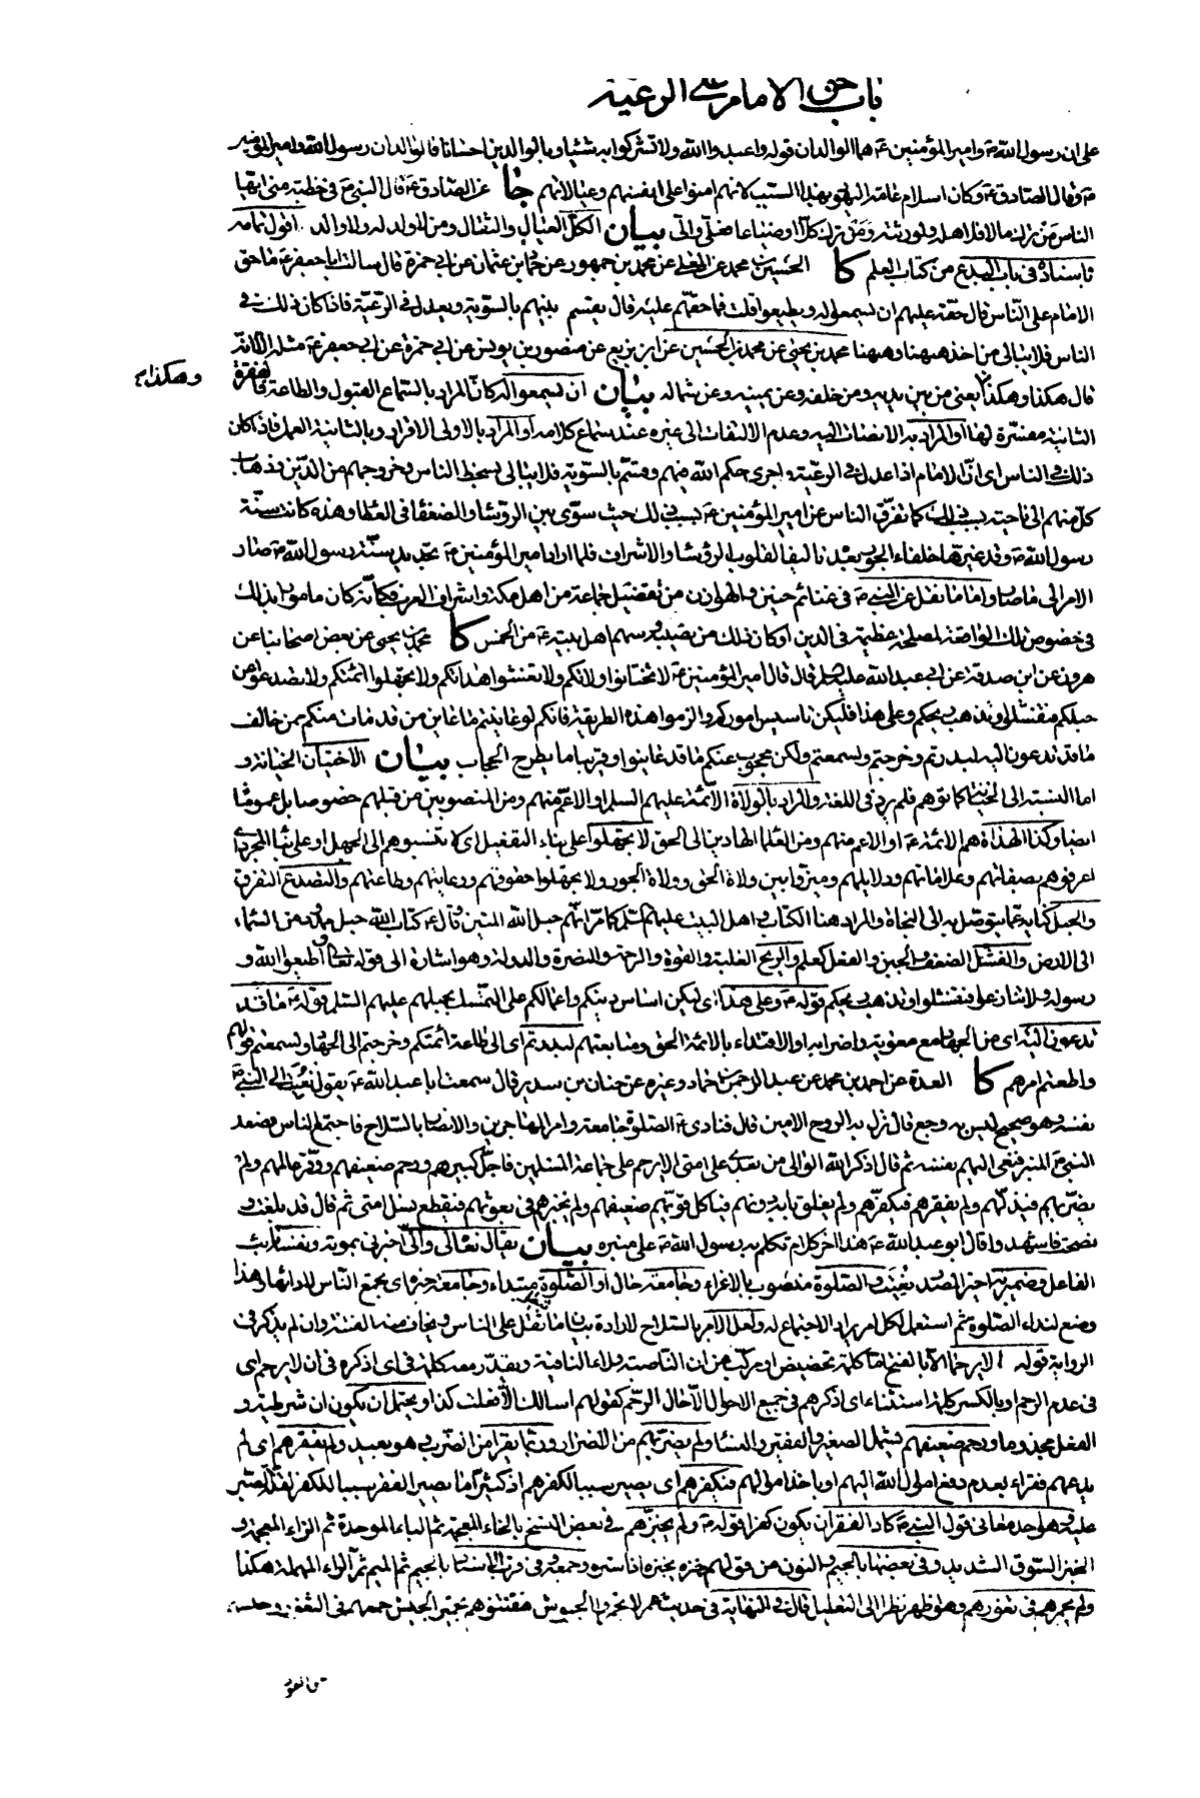 باب حق الامام على الرعية
على ان رسول الله ص وامير المؤمنين ع هما الوالدان قوله واعبدوا الله ولا تشركوا به شيئا وبالوالدين احسانا فالوالدان رسول الله وامير المؤمنين
ص وقال الصادق ع وكان اسلام عامة اليهود بهذا السبب لانهم امنوا على انفسهم وعيالاتهم جا عن الصادق ع قال النبي ص في خطبة منى ايها
الناس من ترك مالا فلاهله ولورثته ومن ترك كلا او ضياعا فعلي والي بيان الكل العيال والثقل ومن لا ولد له ولا والد اقول تمامه
باسناده في باب البدع من كتاب العلم كا الحسين بن محمد عن المعلى عن محمد بن جمهور عن حماد بن عثمان عن ابي حمزة قال سالت ابا جعفر ع ما حق
الامام على الناس قال حقه عليهم ان يسمعوا له ويطيعوا قلت فما حقهم عليه قال يقسم بينهم بالسوية ويعدل في الرعية فاذا كان ذلك في
الناس فلا يبالي من اخذ ههنا وههنا محمد بن يحيى عن محمد بن الحسين عن ابن بزيع عن منصور بن يونس عن ابي حمزة عن ابي جعفر ع مثله الا انه
قال هكذا وهكذا يعني من بين يديه ومن خلفه وعن يمينه وعن شماله بيان ان يسمعوا له كان المراد بالسماع القبول والطاعة فالفقرة
وهكذا
الثانية مفسرة لها او المراد به الانصات اليه وعدم الالتفات الى غيره عند سماع كلامه او المراد بالاولى الاقرار وبالثانية العمل فاذا كان
ذلك في الناس اي ان الامام اذا عدل في الرعية واجرى حكم الله فيهم وقسم بالسوية فلا يبالي بسخط الناس وخروجهم من الدين وذهاب
كل منهم الى ناحية بسبب ذلك كما تفرق الناس عن امير المؤمنين ع بسبب ذلك حيث سوى بين الرؤساء والضعفاء في العطاء وهذه كانت سنة
رسول الله ص وقد غيرها خلفاء الجور بعده تاليفا لقلوب الرؤساء والاشراف فلما اراد امير المؤمنين ع تجديد سنة رسول الله ص صار
الامر الى ما صار واما ما نقل عن النبي ص في غنائم حنين والهوازن من تفضيل جماعة من اهل مكة واشراف العرب فكانه كان مامورا بذلك
في خصوص تلك الواقعة لمصلحة عظيمة في الدين او كان ذلك من نصيبه وسهم اهل بيته ع من الخمس كا محمد بن يحيى عن بعض اصحابنا عن
هرون عن ابن صدقة عن ابي عبد الله عليه السلام قال قال امير المؤمنين ع لا تختانوا ولاتكم ولا تغشوا هداتكم ولا تجهلوا ائمتكم ولا تصدعوا عن
حبلكم فتفشلوا وتذهب ريحكم وعلى هذا فليكن تاسيس اموركم والزموا هذه الطريقة فانكم لو عاينتم ما عاين من قد مات منكم ممن خالف
ما قد تدعون اليه لبدرتم وخرجتم ولسمعتم ولكن محجوب عنكم ما قد عاينوا وقريبا ما يطرح الحجاب بيان الاختيان الخيانة و
اما النسبة الى الخيانة كما توهم فلم يرد في اللغة والمراد بالولاة الائمة عليهم السلام او الاعم منهم ومن المنصوبين من قبلهم خصوصا بل عموما
ايضا وكذا الهداة هم الائمة ع او الاعم منهم ومن العلماء الهادين الى الحق لا تجهلوا على بناء التفعيل اي لا تنسبوهم الى الجهل او على بناء المجرد اي
اعرفوهم بصفاتهم وعلاماتهم ودلائلهم وميزوا بين ولاة الحق وولاة الجور ولا تجهلوا حقوقهم ورعايتهم وطاعتهم والتصدع التفرق
والحبل كناية عما يتوصل به الى النجاة والمراد هنا الكتاب واهل البيت عليهم السلام كما مر انهم حبل الله المتين وقال ع كتاب الله حبل ممدود من السماء
الى الارض والفشل الضعف والجبن والفعل كعلم والريح الغلبة والقوة والرحمة والنصرة والدولة وهو اشارة الى قوله تعالى واطيعوا الله و
رسوله ولا تنازعوا فتفشلوا وتذهب ريحكم قوله ع وعلى هذا اي ليكن اساس دينكم واعمالكم على التمسك بحبلهم عليهم السلام قوله ع ما قد
تدعون اليه اي من الجهاد مع معوية واضرابه او الاقتداء بالائمة الحق ومتابعتهم لبدرتم اي الى طاعة ائمتكم وخرجتم الى الجهاد ولسمعتم قولهم
واطعتم امرهم كا العدة عن احمد بن محمد عن عبد الرحمن بن حماد وغيره عن حنان بن سدير قال سمعت ابا عبد الله ع يقول نعيت الى النبي ص
نفسه وهو صحيح ليس به وجع قال نزل به الروح الامين قال فنادى ع الصلوة جامعة وامر المهاجرين والانصار بالسلاح فاجتمع الناس فصعد
النبي ص المنبر فنعى اليهم نفسه ثم قال اذكر الله الوالي من بعدي على امتي الا يرحم على جماعة المسلمين فاجل كبيرهم ورحم ضعيفهم ووقر عالمهم ولم
يضر بهم فيذلهم ولم يفقرهم فيكفرهم ولم يغلق بابه دونهم فياكل قويهم ضعيفهم ولم يخبزهم في بعوثهم فيقطع نسل امتي ثم قال قد بلغت و
نصحت فاشهدوا قال ابو عبد الله ع هذا اخر كلام تكلم به رسول الله ص على منبره بيان يقال نعاه لي والي اخبرني بموته ونفسه نائب
الفاعل وضمير به احترا لمصدر نعيت والصلوة منصوب بالاغراء وجامعة حال او الصلوة مبتداء وجامعة خبره اي يجمع الناس لادائها وهذا
وضع لنداء الصلوة ثم استعمل لكل امر يراد الاجتماع له ولعل الامر بالسلاح لارادة بيان ما يثقل على الناس ويخاف منه الفتنة وان لم يذكر في
الرواية قوله الا يرحم الا بالفتح اما كلمة تحضيض او مركب من ان الناصبة ولاء النافية ويقدر معه كلمة في اي اذكره في ان لا يرحم اي
في عدم الرحم او بالكسر كلمة استثناء اي اذكرهم في جميع الاحوال الا حال الرحم كقولهم اسالك الا فعلت كذا ويحتمل ان يكون ان شرطية و
الفعل مجزوما ورحم ضعيفهم يشمل الصغير والفقير والنساء ولم يضر بهم من الاضرار وربما يقرا من الضرب وهو بعيد ولم يفقرهم اي لم
يدعهم فقراء بعدم دفع اموال الله اليهم او باخذ اموالهم فيكفرهم اي يصير سببا لكفرهم اذ كثيرا ما يصير الفقر سببا للكفر لقلة الصبر
عليه وهو احد معاني قول النبي ص كاد الفقر ان يكون كفرا قوله ص ولم يخبزهم في بعض النسخ بالخاء المعجمة ثم الباء الموحدة ثم الزاء المعجمة و
الخبز السوق الشديد وفي بعضها بالجيم والنون من قولهم جنزه يجنزه اذا ستره وجمعه وفي قرب الاسناد بالجيم ثم الميم ثم الراء المهملة هكذا
ولم يجمرهم في ثغورهم وهو اظهر نظرا الى التعليل قال في النهاية في حديث عمر لا تجمروا الجيوش فتفتنوهم تجمير الجيش جمعهم في الثغور وحبسهم
عن العود